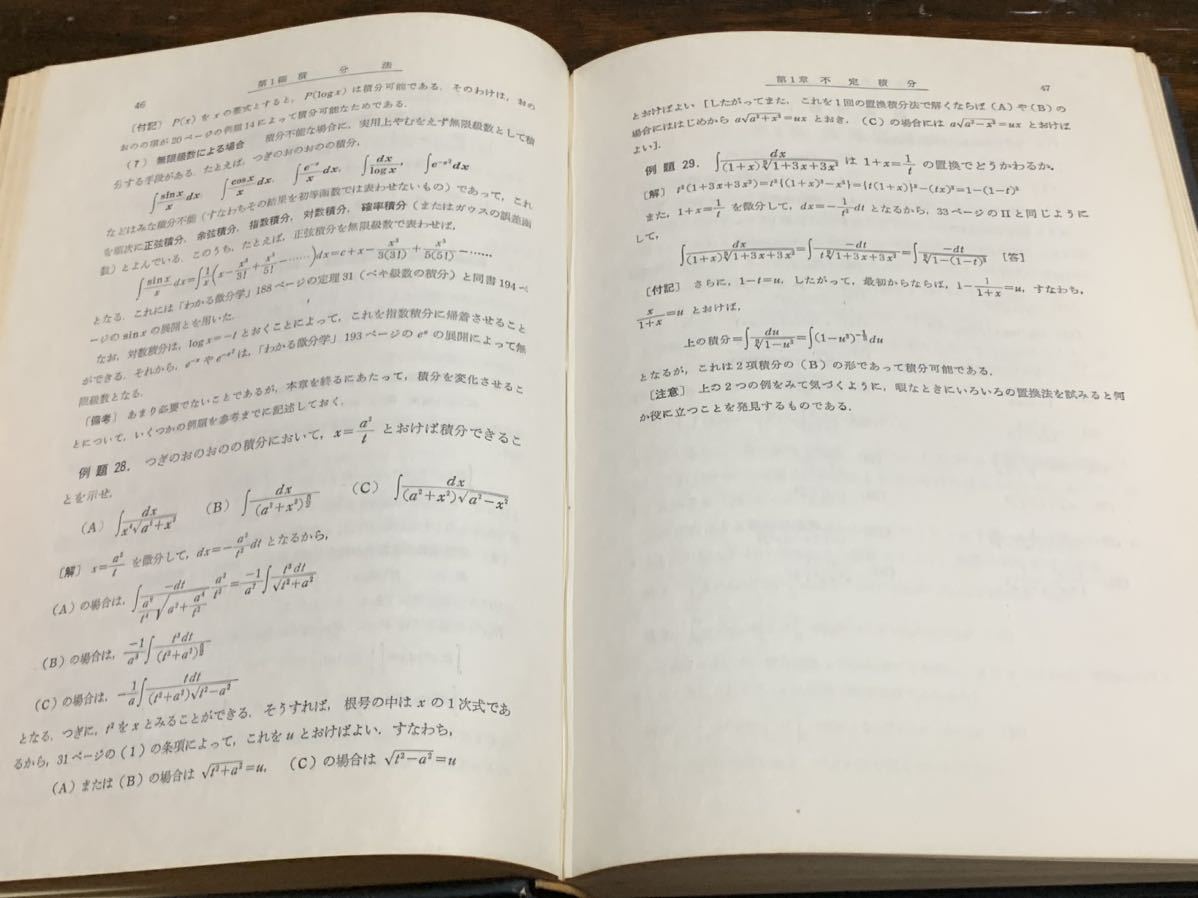 46
第1編 積分法
〔付記〕 P(x) を x の整式とすると, P(log x) は積分可能である. そのわけは, おの
おのの項が20ページの例題14によって積分可能なためである.
(7) 無限級数による場合 積分不能な場合に, 実用上やむをえず無限級数として積
分する手段がある. たとえば, つぎのおのおのの積分,
∫ sin x/x dx, ∫ cos x/x dx, ∫ e^{-x}/x dx, ∫ dx/log x, ∫ e^{-x²} dx
などはみな積分不能 (すなわちその結果を初等函数では表わせないもの) であって, これ
を順次に正弦積分, 余弦積分, 指数積分, 対数積分, 確率積分 (またはガウスの誤差函
数) とよんでいる. このうち, たとえば, 正弦積分を無限級数で表わせば,
∫ sin x/x dx = ∫ 1/x (x − x³/3! + x⁵/5! − ……) dx = c + x − x³/3(3!) + x⁵/5(5!) − ……
となる. これには「わかる微分学」188ページの定理31 (ベキ級数の積分) と同書194ペ
ージの sin x の展開とを用いた.
なお, 対数積分は, log x = −t とおくことによって, これを指数積分に帰着させること
ができる. それから, e^{-x} や e^{-x²} は, 「わかる微分学」193ページの eˣ の展開によって無
限級数となる.
〔備考〕 あまり必要でないことであるが, 本章を終るにあたって, 積分を変化させるこ
とについて, いくつかの例題を参考までに記述しておく.
例題 28. つぎのおのおのの積分において, x = a²/t とおけば積分できるこ
とを示せ.
(A) ∫ dx/x⁴√(a²+x²) (B) ∫ dx/(a²+x²)^{3/2} (C) ∫ dx/(a²+x²)√(a²−x²)
〔解〕 x = a²/t を微分して, dx = −a²/t² dt となるから,
(A) の場合は, ∫ −dt/(a⁸/t⁴ √(a²+a⁴/t²)) a²/t² = −1/a⁷ ∫ t³dt/√(t²+a²)
(B) の場合は, −1/a³ ∫ t³dt/(t²+a²)
(C) の場合は, −1/a ∫ tdt/(t²+a²)√(t²−a²)
となる. つぎに, t² を x とみることができる. そうすれば, 根号の中は x の1次式であ
るから, 31ページの (1) の条項によって, これを u とおけばよい. すなわち,
(A) または (B) の場合は √(t²+a²) = u, (C) の場合は √(t²−a²) = u
第1章 不定積分
47
とおけばよい [したがってまた, これを1回の置換積分法で解くならば (A) や (B) の
場合にははじめから a√(a²+x²) = ux とおき, (C) の場合には a√(a²−x²) = ux とおけば
よい].
例題 29. ∫ dx/(1+x)∛(1+3x+3x²) は 1+x = 1/t の置換でどうかわるか.
〔解〕 t³(1+3x+3x²) = t³{(1+x)³−x³} = {t(1+x)}³−(tx)³ = 1−(1−t)³
また, 1+x = 1/t を微分して, dx = −1/t² dt となるから, 33ページのIIと同じように
して,
∫ dx/(1+x)∛(1+3x+3x²) = ∫ −dt/t∛(1+3x+3x²) = ∫ −dt/∛(1−(1−t)³) [答]
〔付記〕 さらに, 1−t = u, したがって, 最初からならば, 1 − 1/(1+x) = u, すなわち,
x/(1+x) = u とおけば,
上の積分 = ∫ du/∛(1−u³) = ∫ (1−u³)^{−1/3} du
となるが, これは2項積分の (B) の形であって積分可能である.
〔注意〕 上の2つの例をみて気づくように, 暇なときにいろいろの置換法を試みると何
か役に立つことを発見するものである.